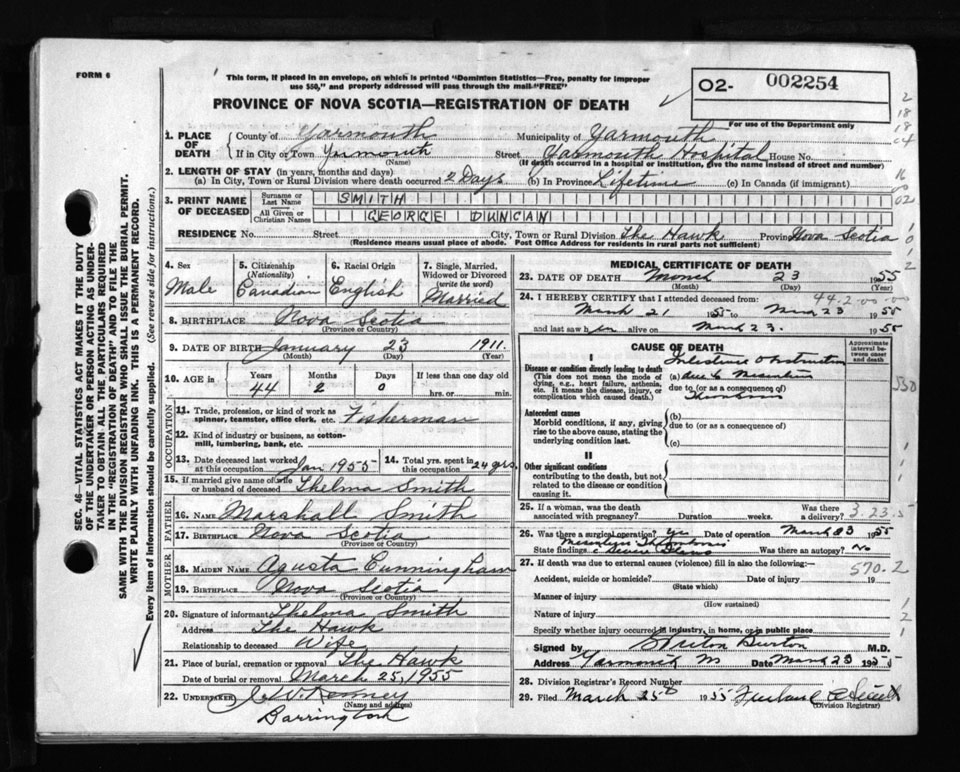 FORM 6
This form, if placed in an envelope, on which is printed "Dominion Statistics—Free, penalty for improper
use $50," and properly addressed will pass through the mail "FREE"
PROVINCE OF NOVA SCOTIA—REGISTRATION OF DEATH
02- 002254
For use of the Department only
1. PLACE OF DEATH County of Yarmouth Municipality of Yarmouth
If in City or Town Yarmouth (Name) Street Yarmouth Hospital House No.
(If death occurred in a hospital or institution, give the name instead of street and number)
2. LENGTH OF STAY (in years, months and days)
(a) In City, Town or Rural Division where death occurred 2 Days (b) In Province Lifetime (c) In Canada (if immigrant)
3. PRINT NAME OF DECEASED Surname or Last Name SMITH
All Given or Christian Names GEORGE DUNCAN
RESIDENCE No. Street City, Town or Rural Division The Hawk Province Nova Scotia
(Residence means usual place of abode. Post Office Address for residents in rural parts not sufficient)
4. Sex Male
5. Citizenship (Nationality) Canadian
6. Racial Origin English
7. Single, Married, Widowed or Divorced (write the word) Married
8. BIRTHPLACE Nova Scotia
(Province or Country)
9. DATE OF BIRTH January 23 1911.
(Month) (Day) (Year)
10. AGE in Years Months Days If less than one day old
44 2 0 hrs. or min.
OCCUPATION
11. Trade, profession, or kind of work as spinner, teamster, office clerk, etc. Fisherman
12. Kind of industry or business, as cotton-mill, lumbering, bank, etc.
13. Date deceased last worked at this occupation Jan 1955
14. Total yrs. spent in this occupation 24 yrs.
15. If married give name of wife or husband of deceased Thelma Smith
FATHER
16. NAME Marshall Smith
17. BIRTHPLACE Nova Scotia
(Province or Country)
MOTHER
18. MAIDEN NAME Agusta Cunningham
19. BIRTHPLACE Nova Scotia
(Province or Country)
20. Signature of informant Thelma Smith
Address The Hawk
Relationship to deceased Wife
21. Place of burial, cremation or removal The Hawk
Date of burial or removal March 25, 1955
22. UNDERTAKER Kenney
(Name and address)
Barrington
MEDICAL CERTIFICATE OF DEATH
23. DATE OF DEATH March 23 1955
(Month) (Day) (Year)
44-2-00-00
24. I HEREBY CERTIFY that I attended deceased from:
March 21 1955 to March 23 1955
and last saw h im alive on March 23. 1955
CAUSE OF DEATH
Approximate interval between onset and death
I
Disease or condition directly leading to death
(This does not mean the mode of dying, e.g., heart failure, asthenia, etc. It means the disease, injury, or complication which caused death.)
(a) Intestinal Obstruction
due to Mesenteric
due to (or as a consequence of)
Thrombosis
Antecedent causes
Morbid conditions, if any, giving rise to the above cause, stating the underlying condition last.
(b)
due to (or as a consequence of)
(c)
II
Other significant conditions
contributing to the death, but not related to the disease or condition causing it.
25. If a woman, was the death associated with pregnancy? Duration weeks. Was there a delivery?
3.23.5
26. Was there a surgical operation? yes Date of operation March 23 1955
Mesenteric Thrombosis
State findings Was there an autopsy? No
27. If death was due to external causes (violence) fill in also the following:—
570.2
Accident, suicide or homicide? Date of injury 19
(State which)
Manner of injury
(How sustained)
Nature of injury
Specify whether injury occurred in industry, in home, or in public place
Signed by Burton M.D.
Address Yarmouth NS Date March 23 1955
28. Division Registrar's Record Number
29. Filed March 25th 1955
(Division Registrar)
SEC. 46—VITAL STATISTICS ACT MAKE IT THE DUTY
OF THE UNDERTAKER OR PERSON ACTING AS UNDER-
TAKER TO OBTAIN ALL THE PARTICULARS REQUIRED
IN THE "REGISTRATION OF DEATH" AND TO FILE THE
SAME WITH THE DIVISION REGISTRAR WHO SHALL ISSUE THE BURIAL PERMIT.
WRITE PLAINLY WITH UNFADING INK. THIS IS A PERMANENT RECORD.
Every item of information should be carefully supplied. (See reverse side for instructions.)